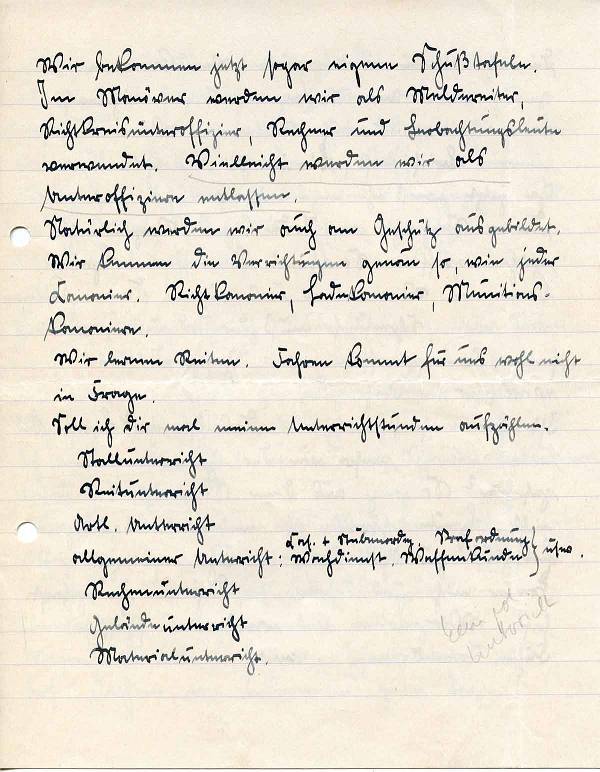 Wir bekommen jetzt sogar eigene Schußtafeln.
Im Manöver werden wir als Meldereiter,
Richtkreisunteroffizier, Rechner und Beobachtungsleute
verwendet. Vielleicht werden wir als
Unteroffiziere entlassen.
Natürlich werden wir auch am Geschütz ausgebildet.
Wir kennen die Verrichtungen genau so, wie jeder
Kanonier. Richtkanonier, Ladekanonier, Munitions-
kanoniere.
Wir lernen Reiten. Fahren kommt für uns wohl nicht
in Frage.
Soll ich Dir mal meine Unterrichtstunden aufzählen.
Stallunterricht
Reitunterricht
Artl. Unterricht
Kas. + Stubenordng, Strafordnung
allgemeiner Unterricht: Wachdienst, Waffenkunde} usw.
Rechenunterricht
Geländeunterricht
Materialunterricht.
Unterricht